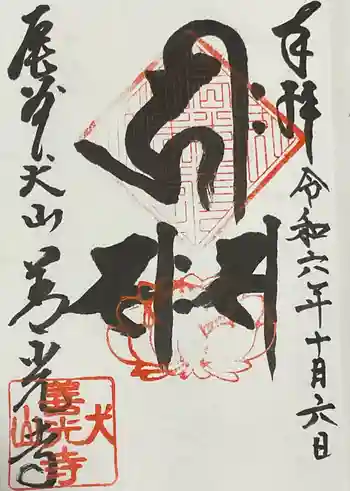 奉拝
令和六年十月六日
尾州犬山善光寺
犬
善光寺
山